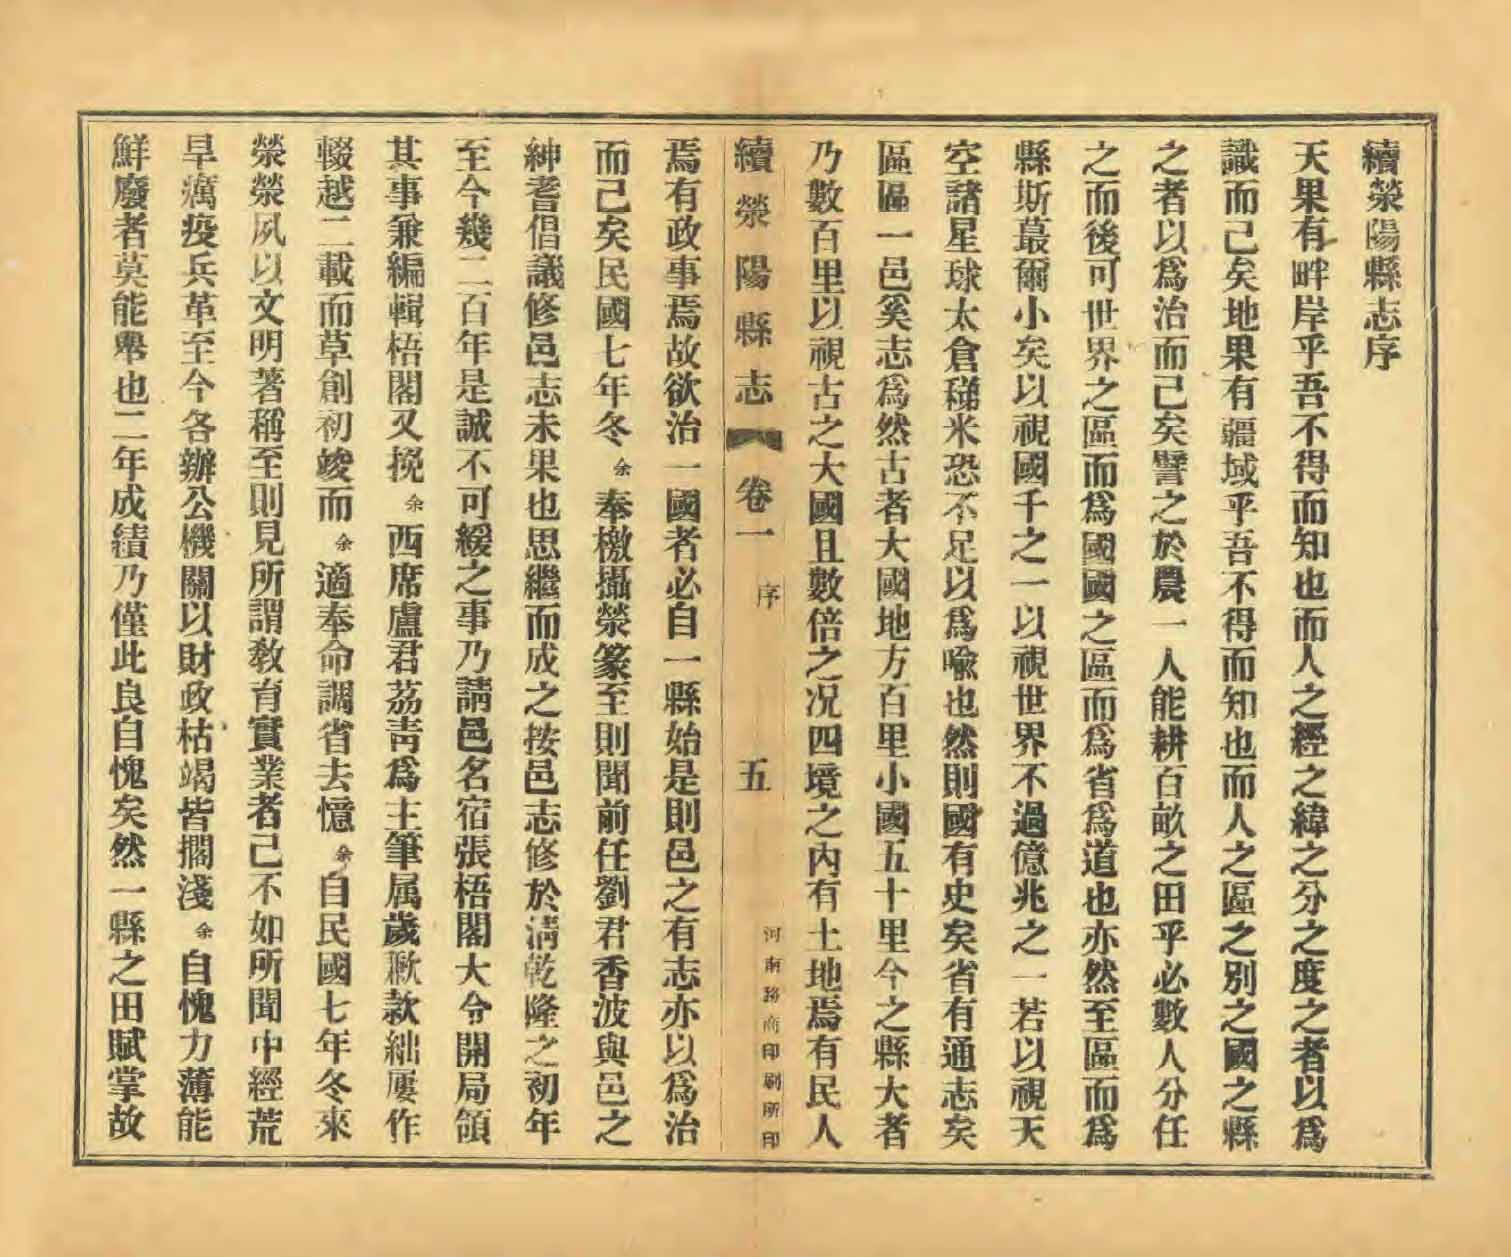 續滎陽縣志序
天果有畔岸乎吾不得而知也而人之經之緯之分之度之者以爲
識而已矣地果有疆域乎吾不得而知也而人之區之別之國之縣
之者以爲治而已矣譬之於農一人能耕百畝之田乎必數人分任
之而後可世界之區而爲國國之區而爲省爲道也亦然至區而爲
縣斯蕞爾小矣以視國千之一以視世界不過億兆之一若以視天
空諸星球太倉稊米恐不足以爲喩也然則國有史矣省有通志矣
區區一邑奚志爲然古者大國地方百里小國五十里今之縣大者
乃數百里以視古之大國且數倍之况四境之內有土地焉有民人
續滎陽縣志 卷一 序 五 河南路商印刷所印
焉有政事焉故欲治一國者必自一縣始是則邑之有志亦以爲治
而已矣民國七年冬余奉檄攝滎篆至則聞前任劉君香波與邑之
紳耆倡議修邑志未果也思繼而成之按邑志修於淸乾隆之初年
至今幾二百年是誠不可緩之事乃請邑名宿張梧閣大令開局領
其事兼編輯梧閣又挽余西席盧君荔靑爲主筆属歲歉款絀屢作
輟越二載而草創初竣而余適奉命調省去憶余自民國七年冬來
滎滎夙以文明著稱至則見所謂教育實業者已不如所聞中經荒
旱癘疫兵革至今各辦公機關以財政枯竭皆擱淺余自愧力薄能
鮮廢者莫能舉也二年成績乃僅此良自愧矣然一縣之田賦掌故